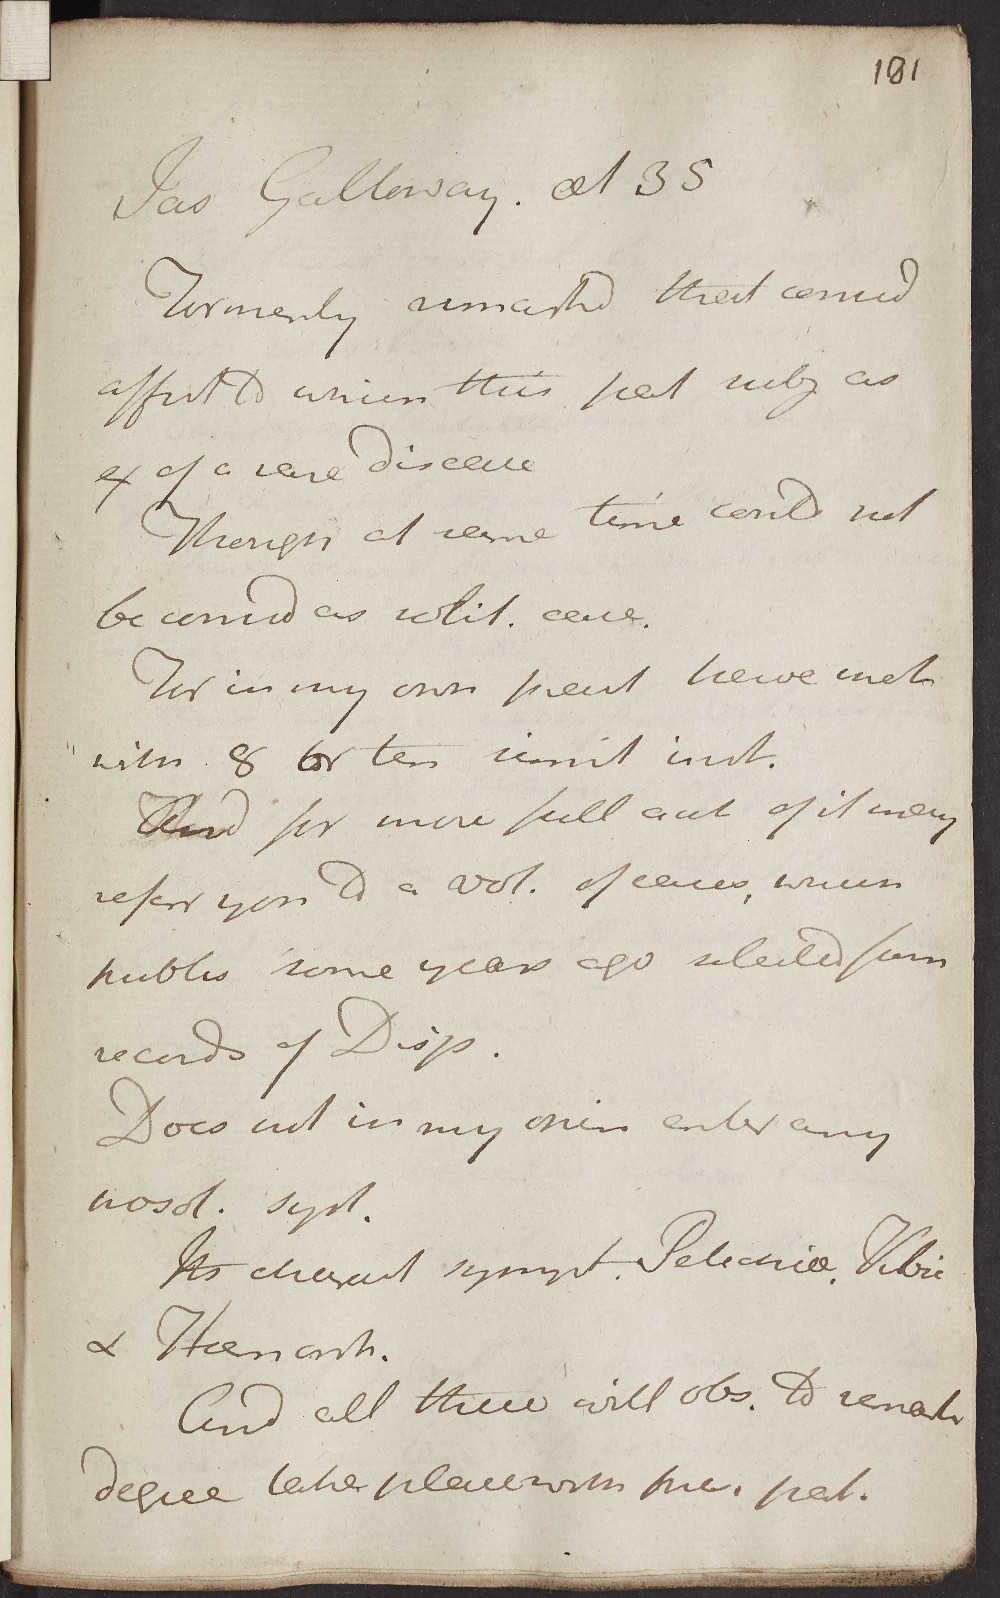 181
Jas Galloway. æt 35
Formerly remarkd that consid
affect to which this pat subj as
ex of a rare disease
Though at same time could not
be consid as solit. case.
For in my own pract have met
with 8 or ten simil inst.
And for more full acct of it may
refer you to a vol. of cases, which
publis some years ago selected from
records of Disp.
Does not in my opin enter any
nosol. syst.
Its charact sympt. Petechiæ, Vibic
& Hæmorrh.
And all these will obs. to remark
degree take place with pres. pat.